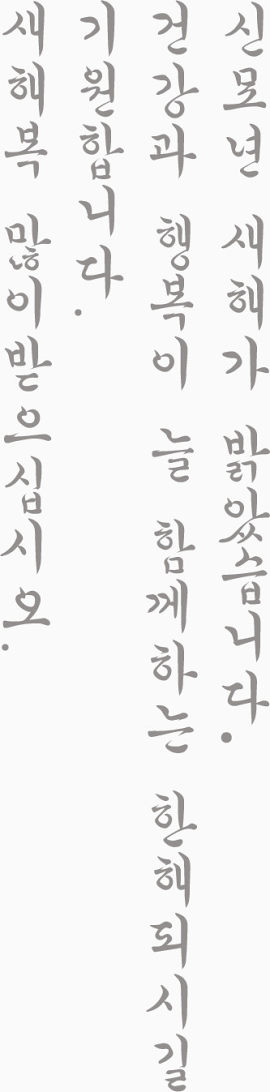 신모년 새해가 밝았습니다.
건강과 행복이 늘 함께하는 한해되시길
기원합니다.
새해복 많이받으십시오.